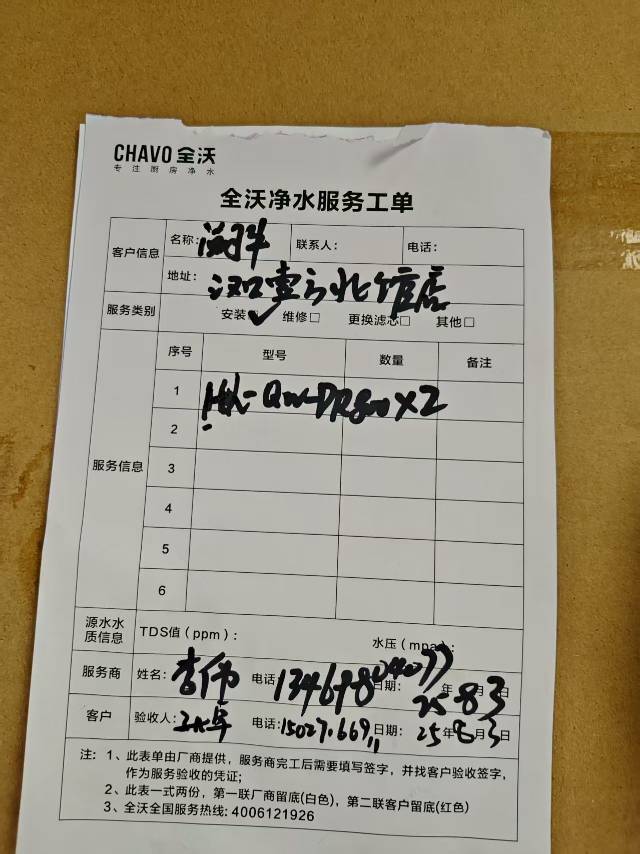 CHAVO 全沃
专注厨房净水
全沃净水服务工单
客户信息 名称: 联系人: 电话:
地址: 汉口 北 店
服务类别 安装✓ 维修□ 更换滤芯□ 其他□
服务信息 序号 型号 数量 备注
1 -QW-DR800 X2
2
3
4
5
6
源水水质信息 TDS值(ppm): 水压(mpa):
服务商 姓名: 李伟 电话 日期: 25年8月3日
客户 验收人: 电话: 15027.669 日期: 25年8月3日
注: 1、此表单由厂商提供，服务商完工后需要填写签字，并找客户验收签字，
作为服务验收的凭证;
2、此表一式两份，第一联厂商留底(白色)，第二联客户留底(红色)
3、全沃全国服务热线: 4006121926